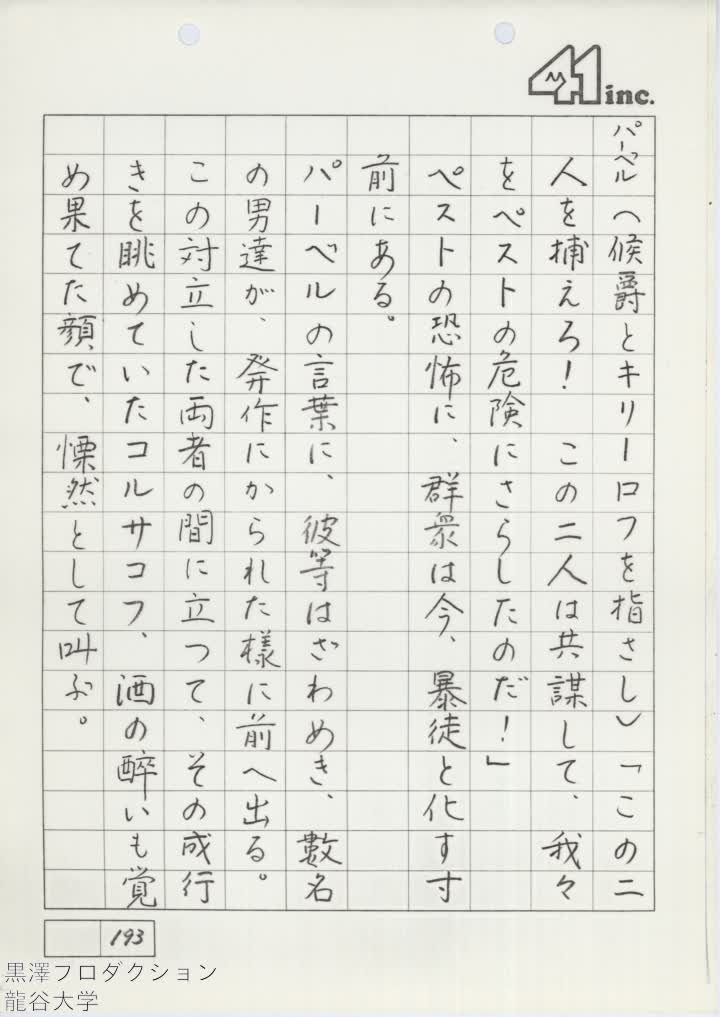 41 inc.
パーベル(候爵とキリーロフを指さし)「この二
人を捕えろ! この二人は共謀して、我々
をペストの危険にさらしたのだ!」
ペストの恐怖に、群衆は今、暴徒と化す寸
前にある。
パーベルの言葉に、彼等はざわめき、數名
の男達が、発作にかられた様に前へ出る。
この対立した両者の間に立つて、その成行
きを眺めていたコルサコフ、酒の酔いも覚
め果てた顔で、慄然として叫ぶ。
193
黒澤プロダクション
龍谷大学